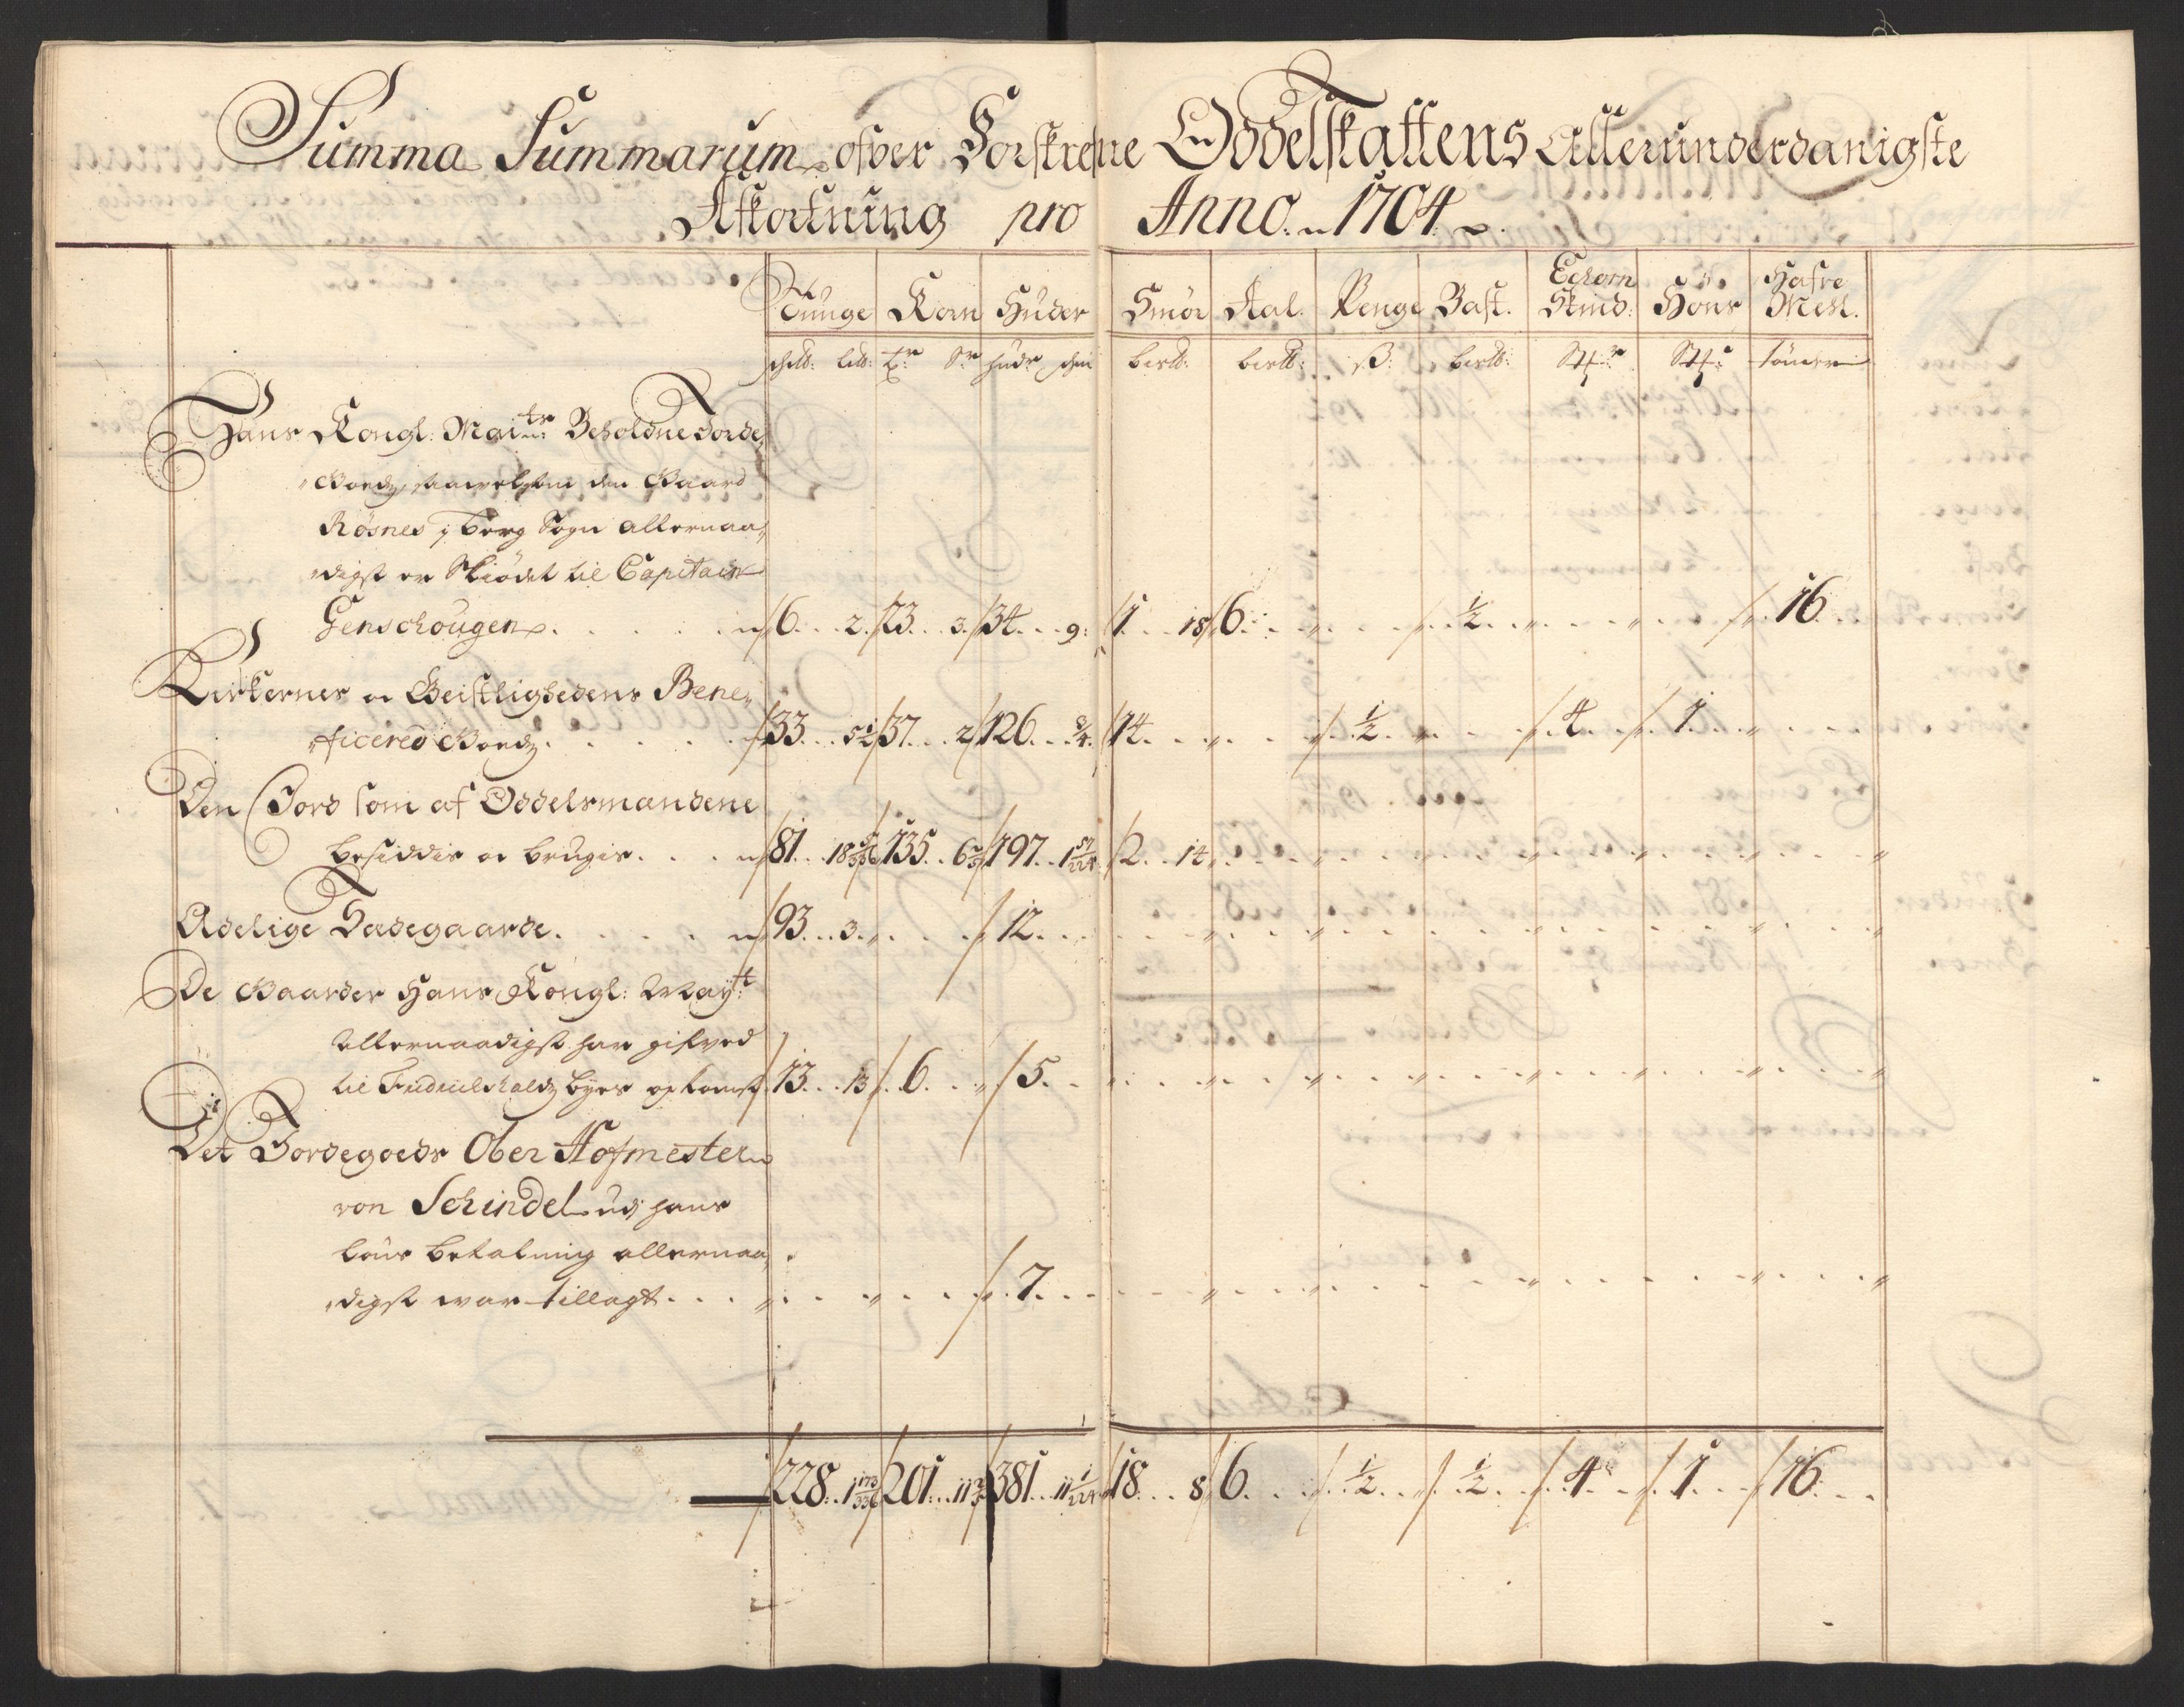 Summa Summarum ofver Forskrefne Oddelskattens Allerunderdanigste
Afkortning pro Anno. 1704
Tunge Korn Huder Smör Aal. Penge Bast. Echorn Skind: Höns Hafre Mehl.
schlb: lub: tr. Sr hudr schin berlb: berlb: ß: berlb: Stkr Stkr tönder
Hans Kongl: Maits Beholdne Jorde,
Goedz saavelsom den Gaard
Rösnes i Berg Sogn allernaa,
digst er Skiödet til Capitain
Genschougen. 6. 2. 23. 3. 34. 9: 1. 18 6. 1/2. 16.
Kirkernes oc Geistlighedens Bene,
ficered Goedz. 33. 5 1/2 37. 2 126. 3/4. 14. 1/2. 4. 1.
Den Jord som af Oddelsmandene
besiddes oc bruges. 81. 135. 197. 2. 14
Adelige Sædegaarde. 93. 3. 12.
De Gaarder Hans Kongl: Mayt:
Allernaadigst har gifved
til Fridrichshaldz byes opkomst 13. 13 6. 5.
Det Jordegoeds Ober Hofmester
von Schindel udj hans
löns betalning allernaa,
digst var tillagt. 7.
228. 1 173/336 201. 11 381. 11 1/224 18. 8 6. 1/2. 1/2. 4. 1. 16.